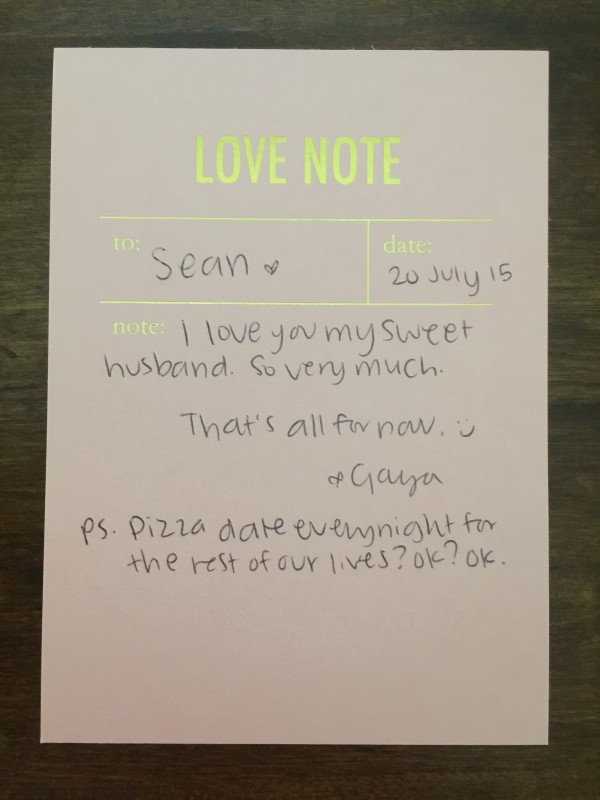 LOVE NOTE
to: Sean
date: 20 July 15
note: I love you my sweet
husband. So very much.
That's all for now. :)
Gaya
ps. Pizza date everynight for
the rest of our lives? ok? ok.